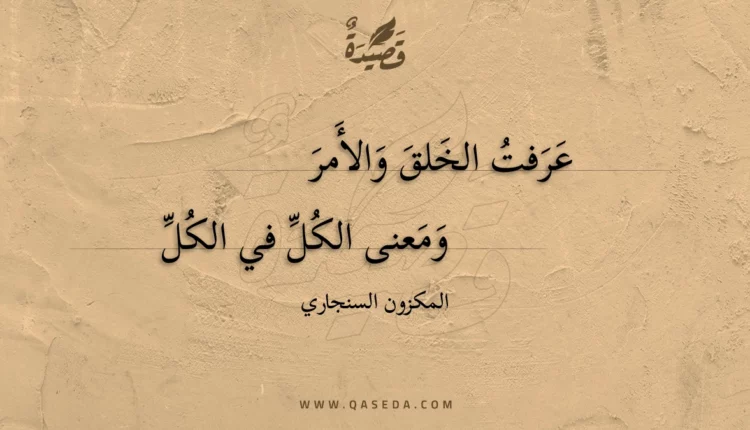 قَصِيدَةٌ
عَرَفتُ الخَلقَ وَالأَمرَ
وَمَعنى الكُلِّ في الكُلِّ
المكزون السنجاري
WWW.QASEDA.COM